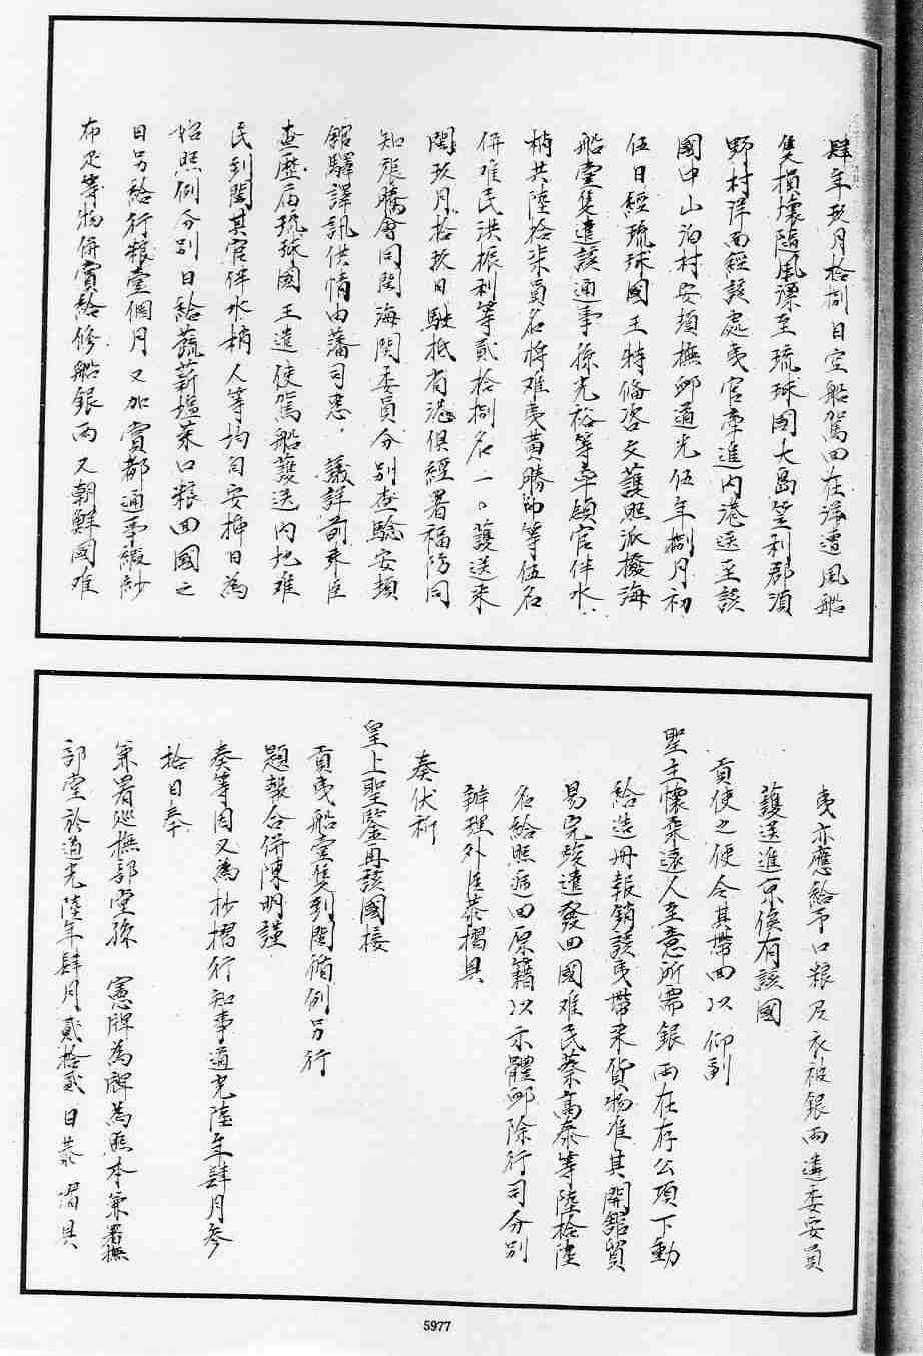 肆年玖月拾捌日空船駕回在洋遭風船
隻損壞隨風漂至琉球國大島笠利郡湏
野村洋面經該處夷官牽進內港送至該
國中山泊村安頓撫卹道光伍年捌月初
伍日經琉球國王特俻咨文護照派撥海
船壹隻遣該通事孫光裕等率領官伴水
梢共陸拾柒員名將难夷黃勝等伍名
併难民洪振利等貳拾捌名一口護送來
閩玖月拾玖日駛抵省港俱經署福防同
知張騰會同閩海関委員分別查驗安頓
館驛譯訊供情由藩司惠議詳前來臣
查歷屆琉球國王遣使駕船護送內地难
民到閩其官伴水梢人等均自安揷日為
始照例分別日給蔬薪塩菜口粮回國之
日另給行粮壹個月又加賞都通事緞紗
布疋等物併賞給修船銀兩又朝鮮國难
夷亦應給予口粮及衣被銀兩遴委妥員
護送進京俟有該國
貢使之便令其帶回以仰副
聖主懷柔遠人至意所需銀兩在存公項下動
給造冊報銷該夷帶来貨物准其開舘貿
易完竣遣發回國难民蔡高泰等陸拾陸
名給照逓回原籍以示體卹除行司分別
辦理外臣恭摺具
奏伏祈
皇上聖鑒再該國接
貢夷船壹隻到閩循例另行
題報合併陳明謹
奏等因又為抄摺行知事道光陸年肆月叄
拾日奉
兼署巡撫部堂孫 憲牌為牌為照本兼署撫
部堂於道光陸年肆月貳拾貳日恭摺具
5977